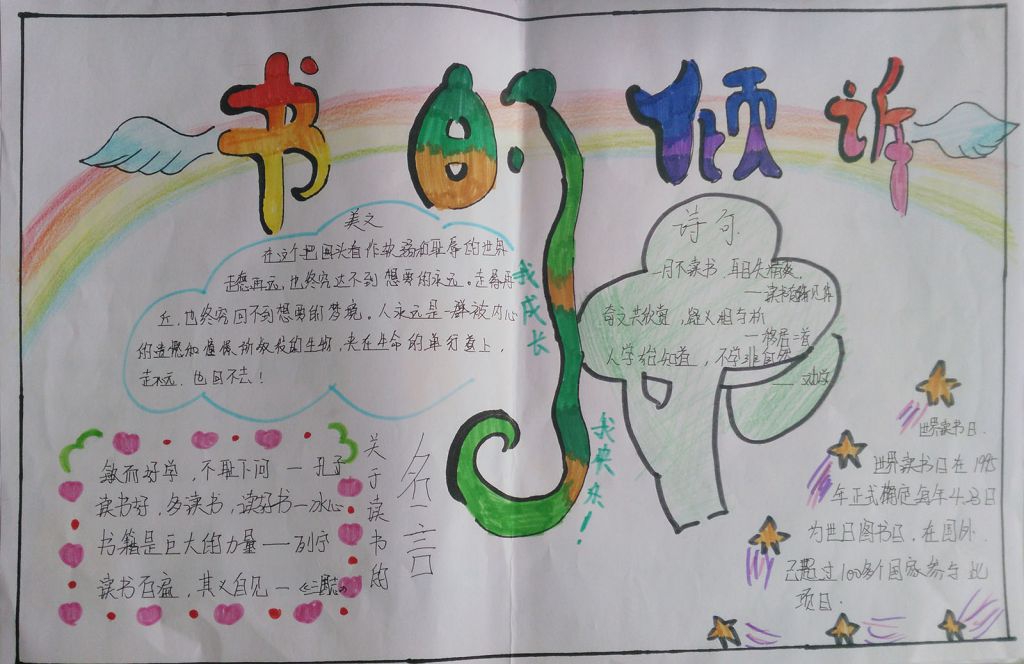 书的倾诉
美文
在这个把回头看作软弱和耻辱的世界
走愈再远，也终究达不到想要的永远。走得再
近，也终究回不到想要的梦境。人永远是一群被内心
的遗憾和憧憬所驱使的生物，夹在生命的单行道上，
走不远，也回不去！
我成长
我快乐！
诗句
一月不读书，耳目失精爽。
——读书有所见作
奇文共欣赏，疑义相与析
——移居二首
人学始知道，不学非自然
——
关于读书的
名言
敏而好学，不耻下问 — 孔子
读书好，多读书，读好书 — 冰心
书籍是巨大的力量 —— 列宁
读书百遍，其义自见 — 《三国志》
世界读书日．
世界读书日在 1995
年正式确定每年4.23日
为世日图书日，在国外．
已超过100多个国家参与比
项目．